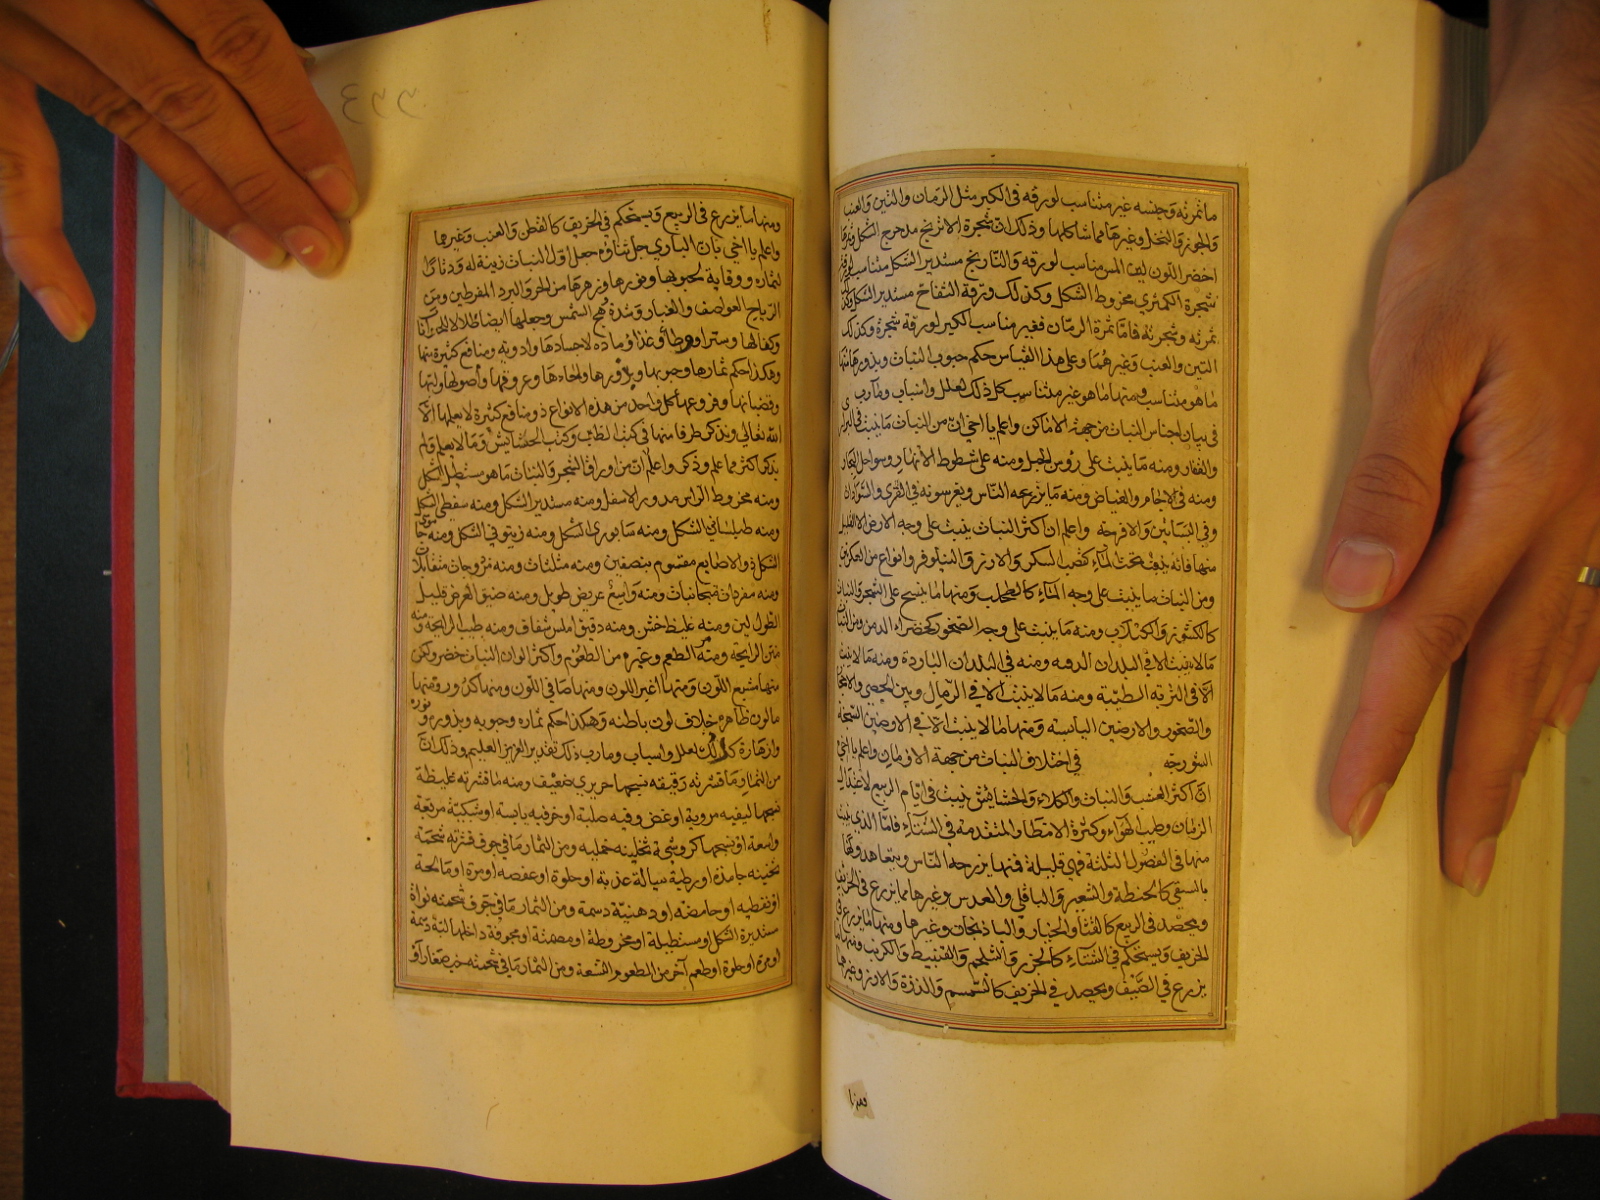 ما ثمرته وجنسه غير متناسب لورقه في الكبر مثل الرمان والتين والعنب
والجوز والنخل وغيرها مما شاكلها وذلك ان شجرة الاترنج مدحرج الشكل وثمرها
اخضر اللون لين اللمس مناسب لورقه والنارنج مستدير الشكل متناسب لورقه
شجرة الكمثري مخروط الشكل وكذلك ورقة التفاح مستدير الشكل وكذا
ثمرته وشجرته فاما ثمرة الرمان فغير مناسب الكبر لورقة شجرة وكذلك
التين والعنب وغيرهما وعلى هذا القياس حكم حبوب النبات وبذورها منها
ما هو متناسب ومنها ما هو غير متناسب كل ذلك لعلل واسباب ومآرب
في بيان اجناس النبات من جهة الاماكن واعلم يا اخي ان من النبات ما ينبت في البراري
والقفار ومنه ما ينبت على رؤس الجبل ومنه على شطوط الانهار وسواحل البحار
ومنه في الاجام والغياض ومنه ما يزرعه الناس ويغرسونه في القرى والسوادات
وفي البساتين والاقرحة واعلم ان اكثر النبات ينبت على وجه الارض الا القليل
منها فانه ينبت تحت الماء كقصب السكر والارز والنيلوفر وانواع من العكرش
ومن النبات ما ينبت على وجه الماء كالطحلب ومنها ما ينسج على الشجر والنبات
كالكشوث والكبلاب ومنه ما ينبت على وجه الصخور كخضراء الدمن ومن النبات
ما لا ينبت الا في البلدان الدفه ومنه في البلدان الباردة ومنه ما لا ينبت
الا في التربة الطيبة ومنه ما لا ينبت الا في الرمال وبين الحصى والاحجار
والصخور والارضين اليابسه ومنها ما لا ينبت الا في الارضين السبخة
الشورجه في اختلاف النبات من جهة الازمان واعلم يا اخي
ان اكثر العشب والنبات والكلاء والحشائش ينبت في ايام الربيع لاعتدال
الزمان وطيب الهواء وكثرة الامطار المتقدمة في الشتاء فاما الذي ينبت
منها في الفصول الثلثة فهي قليلة فمنها يزرعه الناس ويتعاهدونها
بالسقي كالحنطة والشعير والباقلي والعدس وغيرها مما يزرع في الخريف
ويحصد في الربيع كالقثاء والخيار والباذنجان وغيرها ومنها ما يزرع في
الخريف ويستحكم في الشتاء كالجزر والشلجم والقنبيط والكرنب ومنها ما
يزرع في الصيف ويحصد في الخريف كالسمسم والذرة والارز وغيرها
ومنها
ومنها ما يزرع في الربيع ويستحكم في الخريف كالقطن والعنب وغيرها
واعلم يا اخي بان الباري جل ثناؤه جعل اول النبات زينة له ودثارا
لثماره ووقاية لحبوبها ونورها وزهرها من الحر والبرد المفرطين ومن
الرياح العواصف والغبار وشدة وهج الشمس وجعلها ايضا ظلالا للحيوانات
وكفا لها وسترا ووطاء وغذاء ومادة لاجسادها وادوية ومنافع كثيرة منها
وهكذا حكم ثمارها وحبوبها وبذورها ولحاءها وعروقها واصولها ولبها
وقضبانها وفروعها كل واحد من هذه الانواع ذو منافع كثيرة لا يعلمها الا
الله تعالى ونذكر طرفا منها في كتب الطب وكتب الحشائش وما لا يعلم ولم
يذكر اكثر مما علم وذكر واعلم ان من اوراق الشجر والنبات ما هو مستطيل الشكل
ومنه مخروط الراس مدور الاسفل ومنه مستدير الشكل ومنه سفطي الشكل
ومنه طيلساني الشكل ومنه سابوري الشكل ومنه زيتوني الشكل ومنه
الشكل ذو الاصابع مقسوم بنصفين ومنه مثلثات ومنه مزوجات متقابلات
ومنه مفردات متجانبات ومنه واسع عريض طويل ومنه ضيق العرض قليل
الطول لين ومنه غليظ خشن ومنه دقيق املس شفاف ومنه طيب الرايحة ومنه
منتن الرايحه ومنه مر الطعم وغيره من الطعوم واكثر الوان النبات خضر ولكن
منها مشبع اللون ومنها اغبر اللون ومنها صافي اللون ومنها كدر ومنها
ما لون ظاهره خلاف لون باطنه وهكذا حكم ثماره وحبوبه وبذوره ونوره
وازهاره كل ذلك لعلل واسباب ومارب ذلك تقدير العزيز العليم وذلك ان
من الثمار ما قشرته رقيقه نسجها حريري ضعيف ومنه ما قشرته غليظة
نسجها ليفيه مروية او غضروفيه صلبة او خزفيه يابسة او شبكيه مربعة
واسعة او نسجها
ثخينه جامدة او رطبة سيالة عذبة او حلوة او عفصه او مرة او مالحة
او نفطيه او حامضه او دهنية دسمة ومن الثمار ما في جوف شحمته نواة
مستديرة الشكل او مستطيلة او مخروطة او مصمتة او مجوفة داخلها لبة دسمة
او مرة او حلوة او طعم آخر من الطعوم التسعة ومن الثمار ما في شحمته حب صغار او